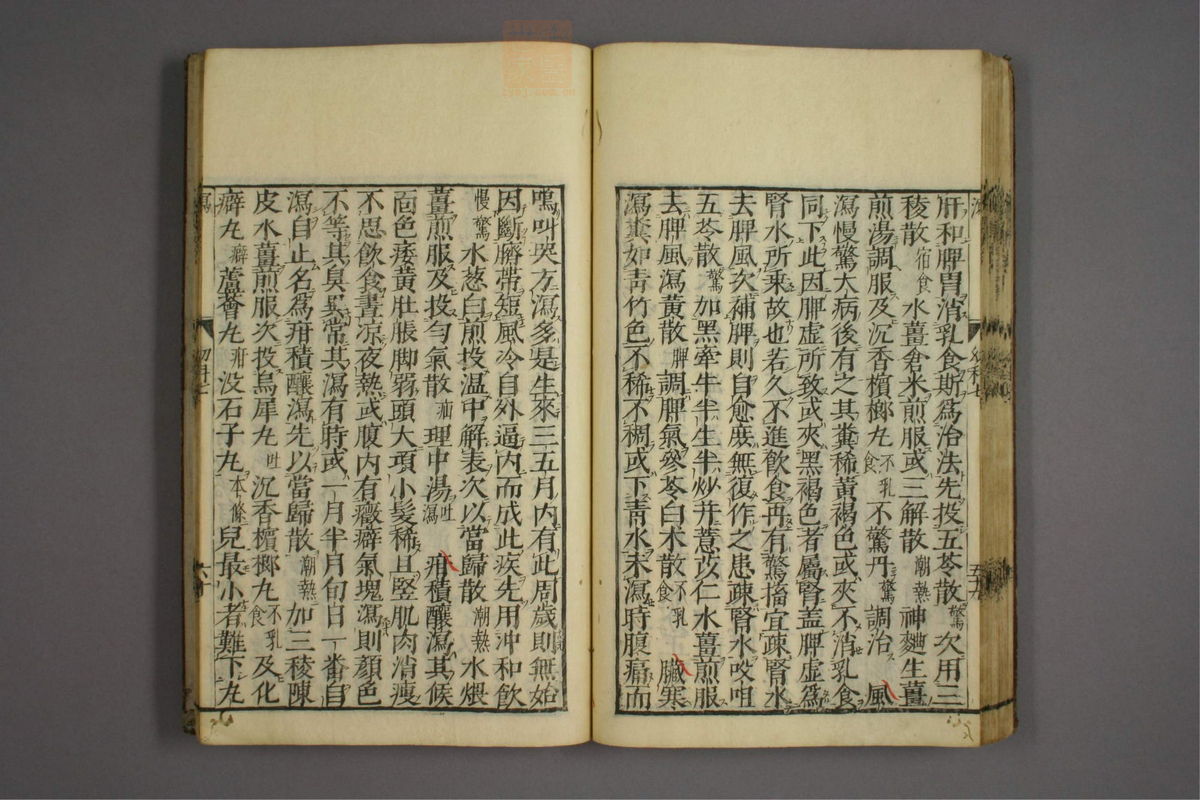 肝和脾胃消乳食斯爲治法先投五苓散驚次用三
稜散宿食水薑倉米煎服或三解散潮熱神麯生薑
煎湯調服及沉香檳榔丸不乳食不驚丹驚調治風
瀉慢驚大病後有之其糞稀黃褐色或夾不消乳食
同下此因脾虛所致或夾黑褐色者屬腎蓋脾虛爲
腎水所乘故也若久不進飲食再有驚搐宜疎腎水
去脾風次補脾則自愈庶無復作之患疎腎水㕮咀
五苓散驚加黑牽牛半生半炒并薏苡仁水薑煎服
去脾風瀉黃散脾調脾氣參苓白朮散不乳食臟寒
瀉糞如青竹色不稀不稠或下青水未瀉時腹痛而
鳴叫哭方瀉多是生來三五月內有此周歲則無始
因斷臍帶短風冷自外逼內而成此疾先用冲和飲
慢驚水葱白煎投温中解表次以當歸散潮熱水煨
薑煎服及投勻氣散疝理中湯吐瀉疳積釀瀉其候
面色痿黃肚脹脚弱頭大項小髮稀且竪肌肉消瘦
不思飲食晝凉夜熱或腹內有癥癖氣塊瀉則顏色
不等其臭異常其瀉有時或一月半月旬日一番自
瀉自止名爲疳積釀瀉先以當歸散潮熱加三稜陳
皮水薑煎服次投烏犀丸吐沉香檳榔丸不乳食及化
癖丸癖蘆薈丸疳没石子丸本條兒最小者難下丸